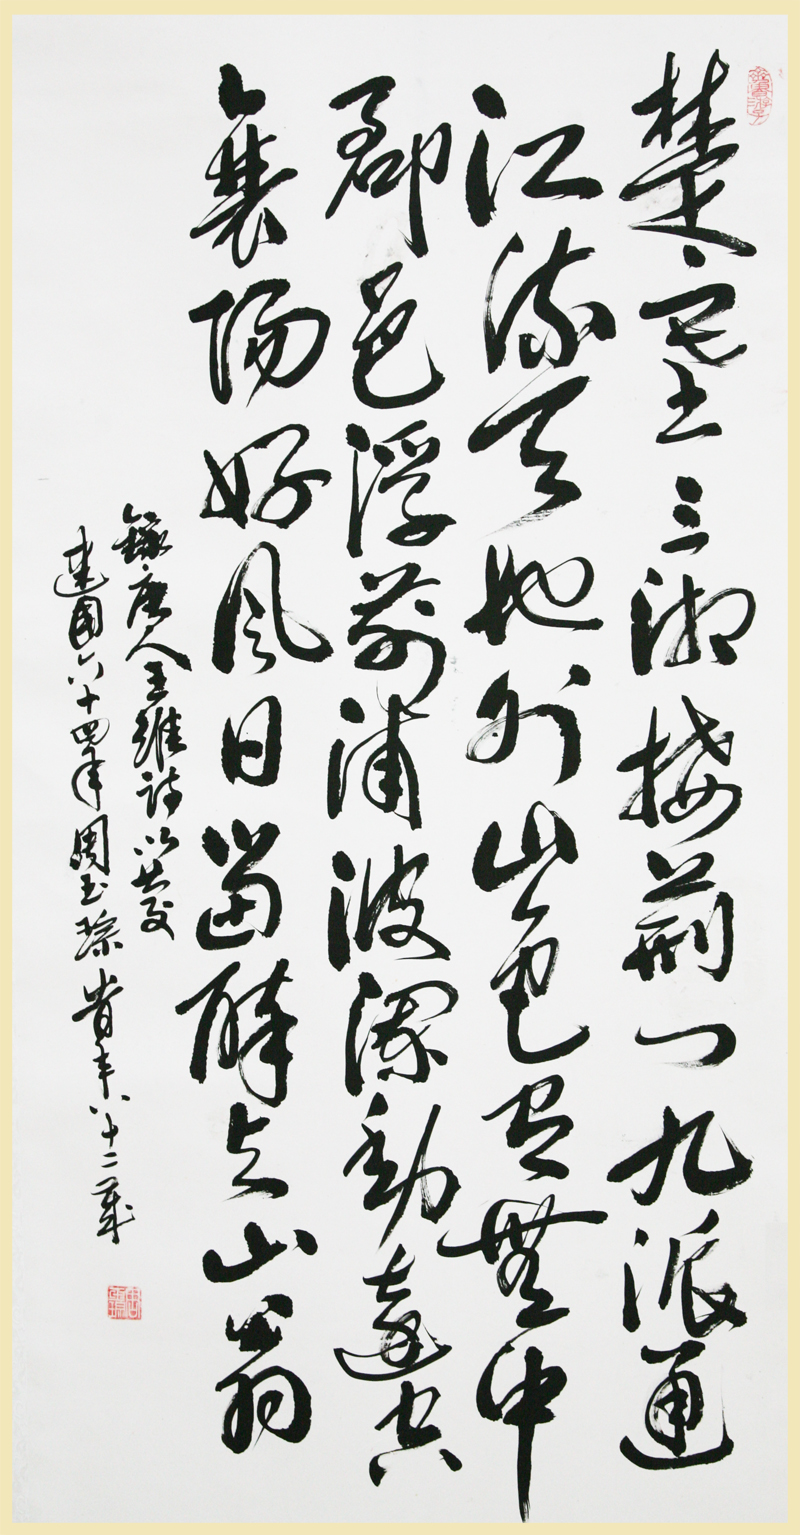 楚塞三湘接荊門九派通
江流天地外山色有無中
郡邑浮前浦波瀾動遠空
襄陽好風日留醉与山翁
錄唐人王維詩以
建國六十四年周玉琮旹年八十二歲